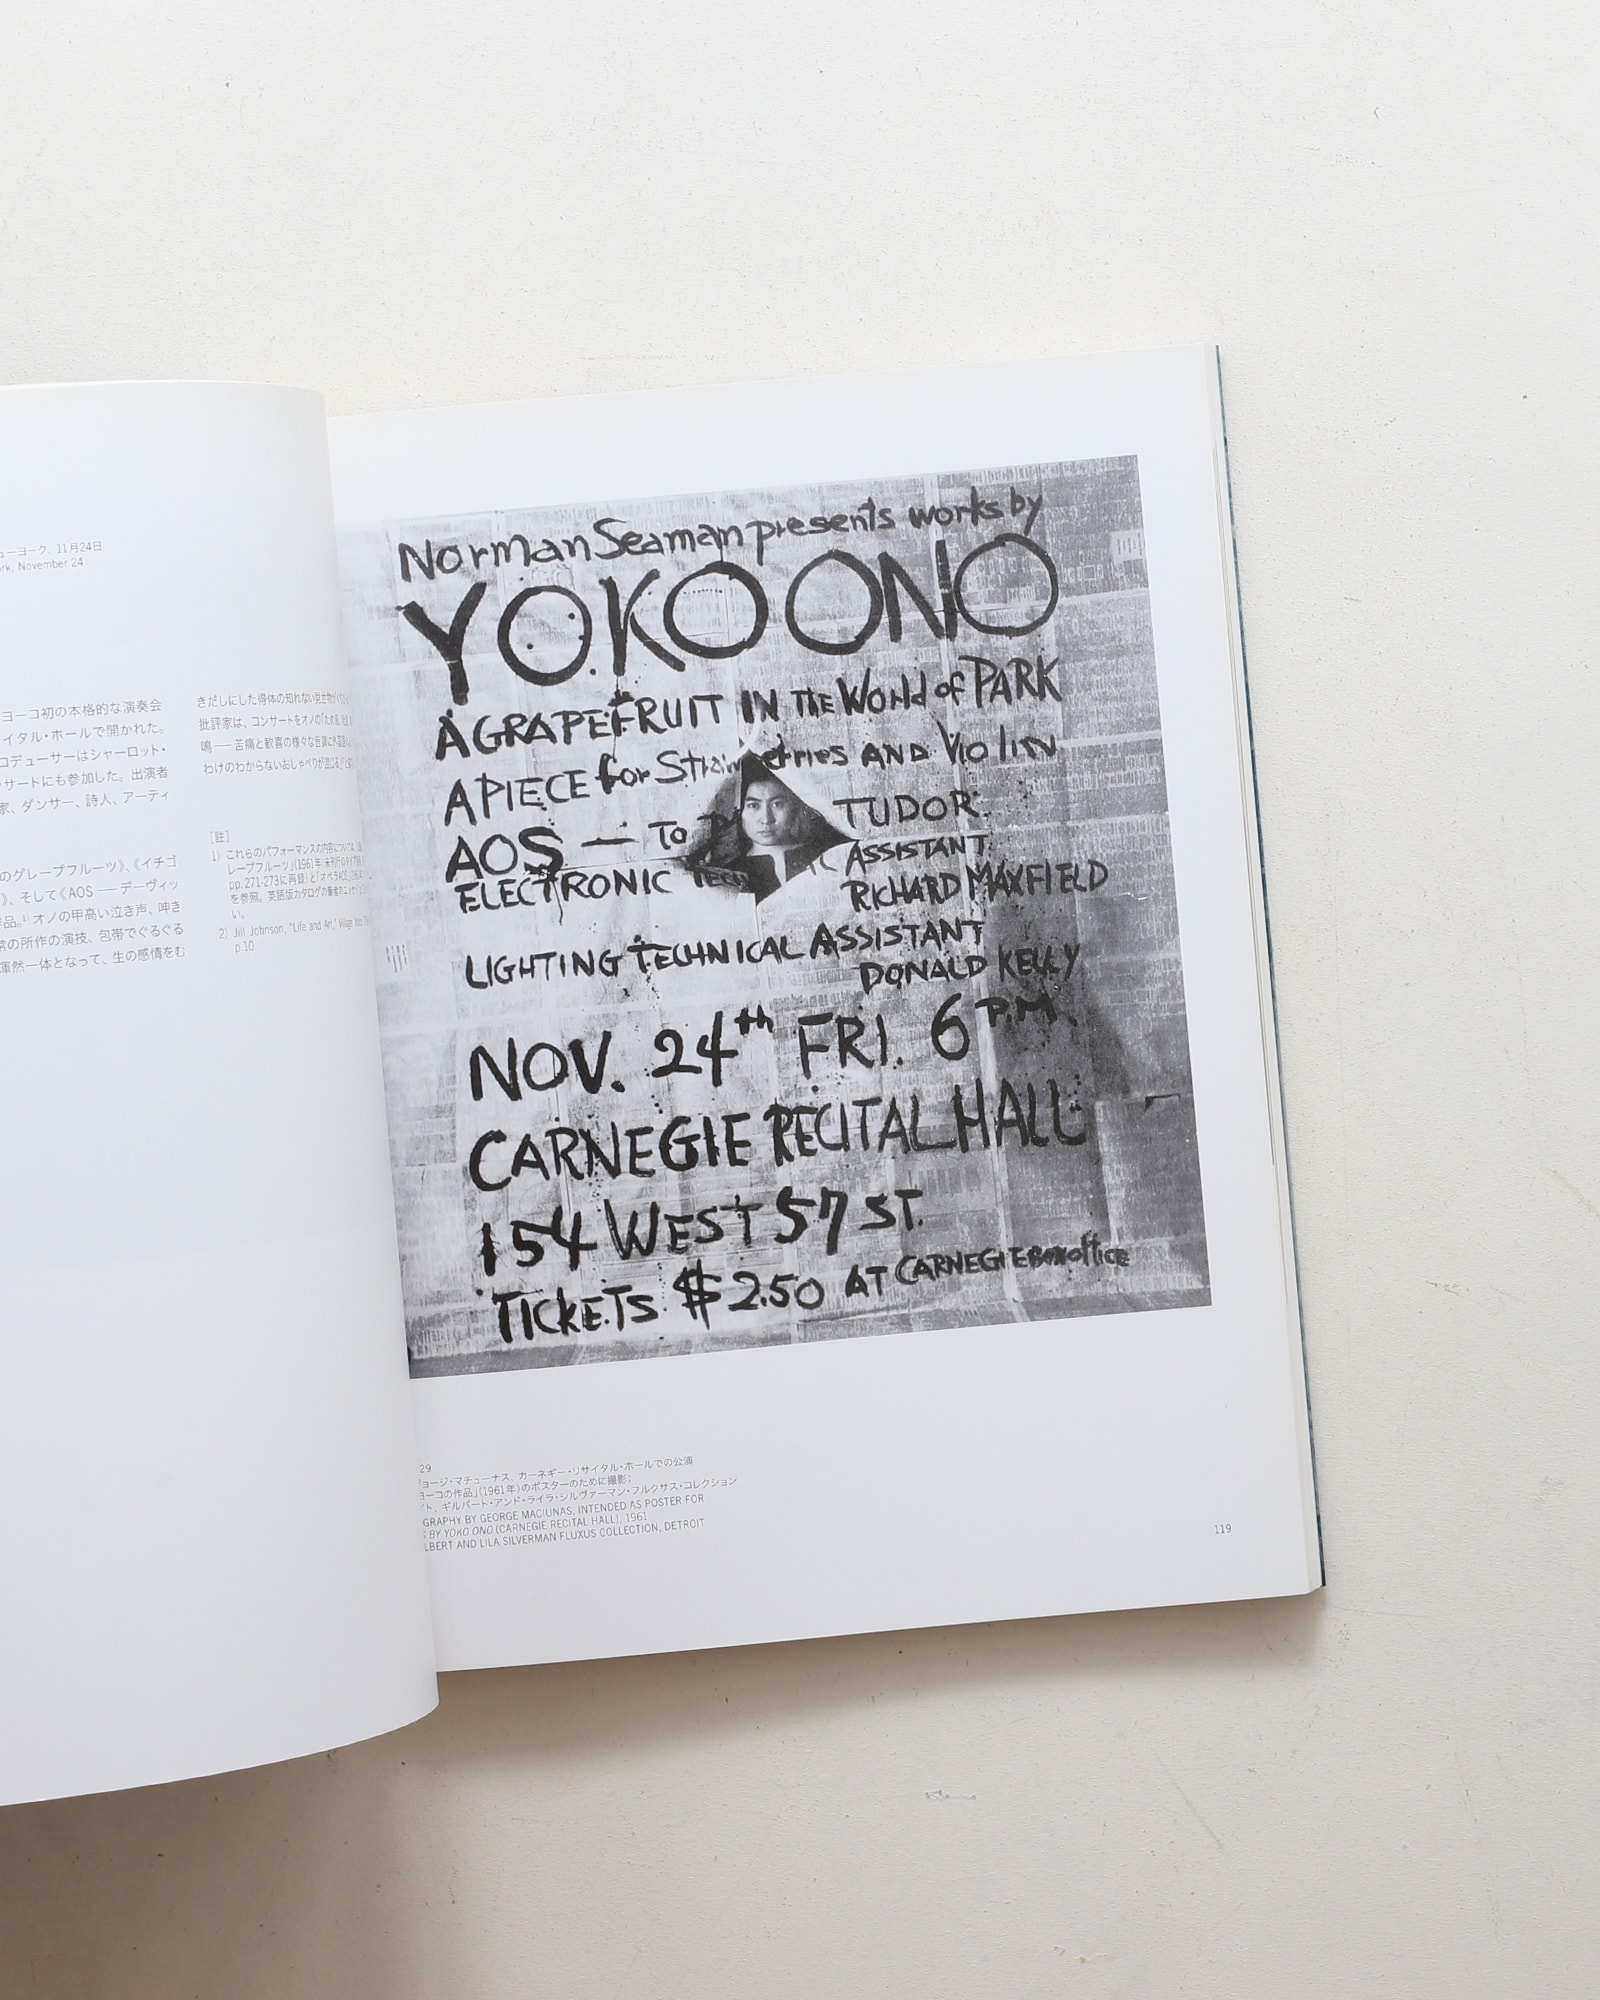 ューヨーク、11月24日
rk, November 24
ヨーコ初の本格的な演奏会
イタル・ホールで開かれた。
コデューサーはシャーロット・
サートにも参加した。出演者
家、ダンサー、詩人、アーティ
のグレープフルーツ》、《イチゴ
》、そして《AOS ── デーヴィッ
品。1) オノの甲高い泣き声、呻き
常の所作の演技、包帯でぐるぐる
渾然一体となって、生の感情をむ
きだしにした得体の知れない見世物
批評家は、コンサートをオノの
鳴 ── 苦痛と歓喜の様々な音調に
わけのわからないおしゃべりが
[註]
1) これらのパフォーマンスの内容については、
レープフルーツ」(1961年;
pp.271-273に再録)と「オペラAOS」
を参照。英語版カタログの筆者のエッセイ
い。
2) Jill Johnson, "Life and Art," Village
p.10.
Norman Seaman presents works by
YOKO ONO
A GRAPEFRUIT IN THE World of PARK
A PIECE for Strawberries AND Violin
AOS — To D TUDOR
ELECTRONIC TECHNIC ASSISTANT
RICHARD MAXFIELD
LIGHTING TECHNICAL ASSISTANT
DONALD KELLY
NOV. 24th FRI. 6 P.M.
CARNEGIE RECITAL HALL
154 WEST 57 ST.
TICKETS $2.50 AT CARNEGIE Box office
29
ョージ・マチューナス、カーネギー・リサイタル・ホールでの公演
ヨーコの作品」(1961年)のポスターのために撮影;
ト、ギルバート・アンド・ライラ・シルヴァーマン・フルクサス・コレクション
GRAPHY BY GEORGE MACIUNAS, INTENDED AS POSTER FOR
S BY YOKO ONO (CARNEGIE RECITAL HALL), 1961
LBERT AND LILA SILVERMAN FLUXUS COLLECTION, DETROIT
119